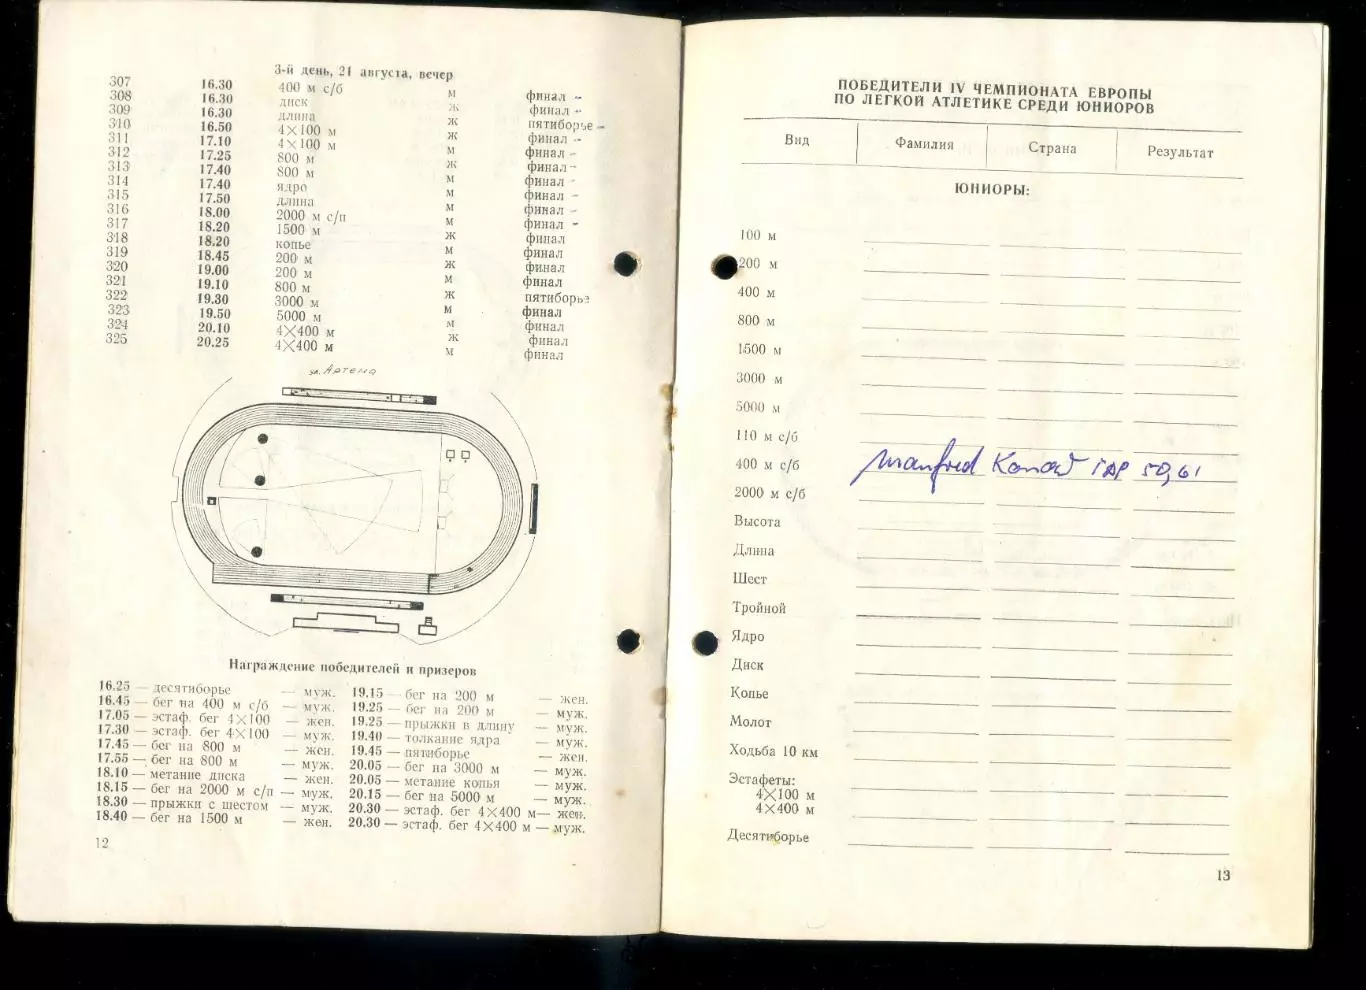 3-й день, 21 августа, вечер
307 16.30 400 м с/б м финал -
308 16.30 диск ж финал -
309 16.30 длина ж пятиборье -
310 16.50 4×100 м ж финал -
311 17.10 4×100 м м финал -
312 17.25 800 м ж финал -
313 17.40 800 м м финал -
314 17.40 ядро м финал -
315 17.50 длина м финал -
316 18.00 2000 м с/п м финал -
317 18.20 1500 м ж финал
318 18.20 копье м финал
319 18.45 200 м ж финал
320 19.00 200 м м финал
321 19.10 800 м ж пятиборье
322 19.30 3000 м м финал
323 19.50 5000 м м финал
324 20.10 4×400 м ж финал
325 20.25 4×400 м м финал
ул. Артема
Награждение победителей и призеров
16.25 — десятиборье — муж.
16.45 — бег на 400 м с/б — муж.
17.05 — эстаф. бег 4×100 — жен.
17.30 — эстаф. бег 4×100 — муж.
17.45 — бег на 800 м — жен.
17.55 — бег на 800 м — муж.
18.10 — метание диска — жен.
18.15 — бег на 2000 м с/п — муж.
18.30 — прыжки с шестом — муж.
18.40 — бег на 1500 м — жен.
19.15 — бег на 200 м — жен.
19.25 — бег на 200 м — муж.
19.25 — прыжки в длину — муж.
19.40 — толкание ядра — муж.
19.45 — пятиборье — жен.
20.05 — бег на 3000 м — муж.
20.05 — метание копья — муж.
20.15 — бег на 5000 м — муж.
20.30 — эстаф. бег 4×400 м — жен.
20.30 — эстаф. бег 4×400 м — муж.
12
ПОБЕДИТЕЛИ IV ЧЕМПИОНАТА ЕВРОПЫ
ПО ЛЕГКОЙ АТЛЕТИКЕ СРЕДИ ЮНИОРОВ
Вид Фамилия Страна Результат
ЮНИОРЫ:
100 м
200 м
400 м
800 м
1500 м
3000 м
5000 м
110 м с/б
400 м с/б Manfred Konow ГДР 50,61
2000 м с/б
Высота
Длина
Шест
Тройной
Ядро
Диск
Копье
Молот
Ходьба 10 км
Эстафеты:
4×100 м
4×400 м
Десятиборье
13